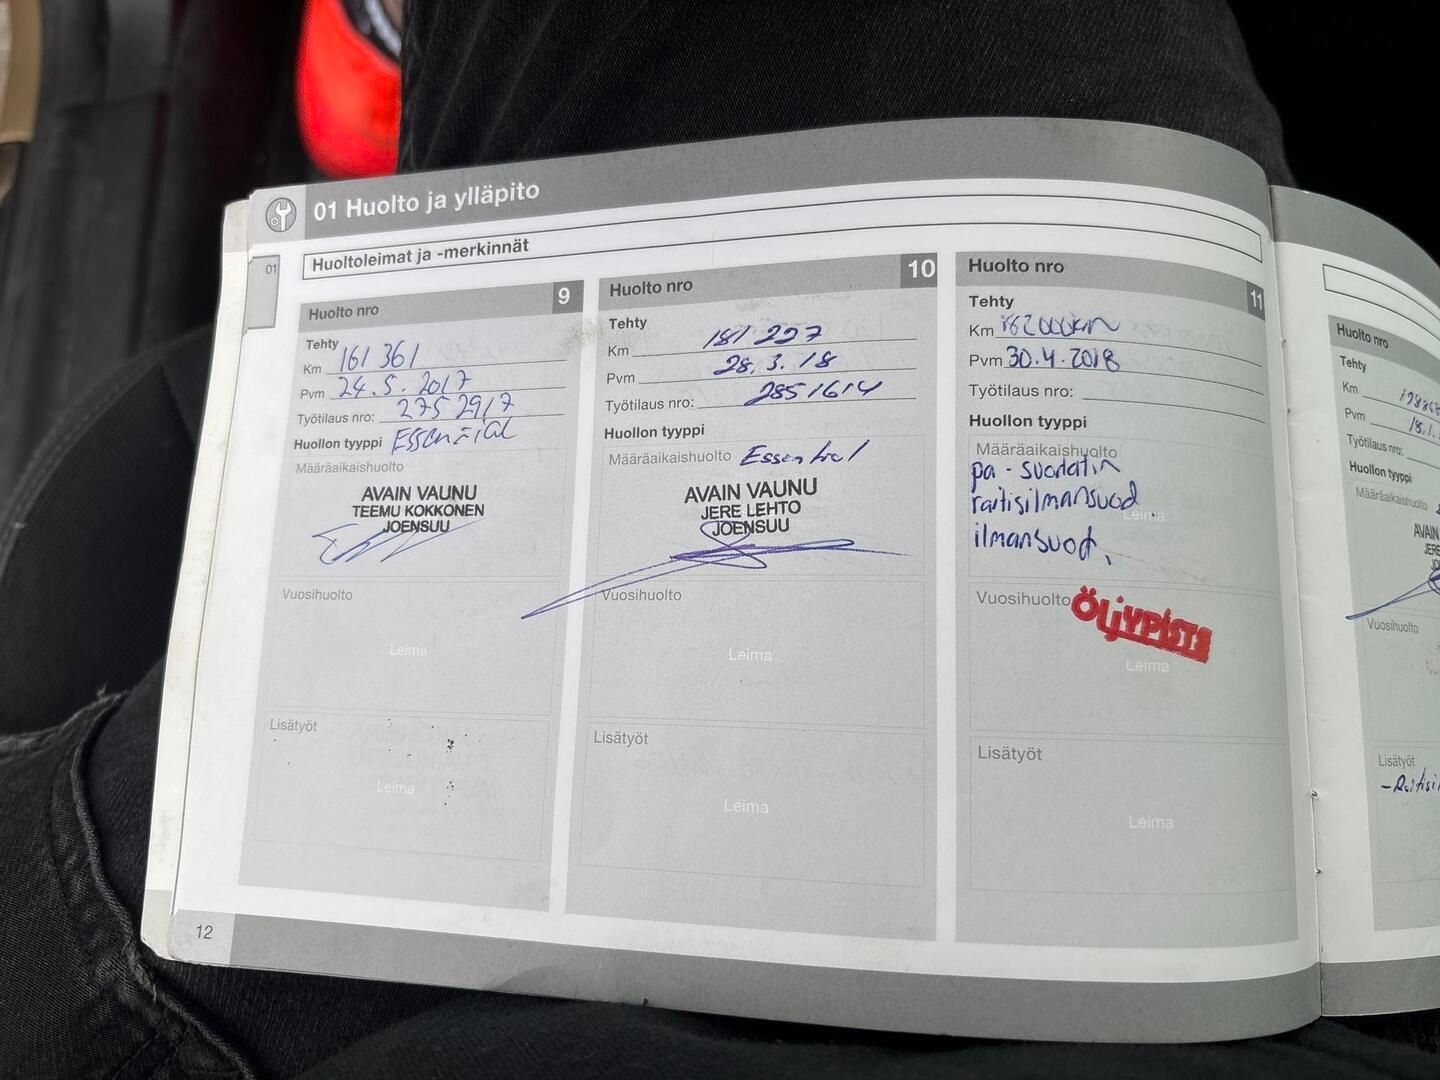 01 Huolto ja ylläpito
Huoltoleimat ja -merkinnät
01
Huolto nro 9
Tehty
Km 161 361
Pvm 24.5.2017
Työtilaus nro: 2752917
Huollon tyyppi Essential
Määräaikaishuolto
AVAIN VAUNU
TEEMU KOKKONEN
JOENSUU
Vuosihuolto
Leima
Lisätyöt
Leima
12
Huolto nro 10
Tehty
Km 181 227
Pvm 28.3.18
Työtilaus nro: 2851614
Huollon tyyppi
Määräaikaishuolto Essential
AVAIN VAUNU
JERE LEHTO
JOENSUU
Vuosihuolto
Leima
Lisätyöt
Leima
Huolto nro 11
Tehty
Km 182000km
Pvm 30.4.2018
Työtilaus nro:
Huollon tyyppi
Määräaikaishuolto
pa-suodatin
raitisilmansuod.
Leima
ilmansuod.
Vuosihuolto ÖLJYPISTE
Leima
Lisätyöt
Leima
Huolto nro
Tehty
Km
Pvm 18.1.
Työtilaus nro:
Huollon tyyppi
Määräaikaishuolto
AVAIN
JERE
Vuosihuolto
Lisätyöt